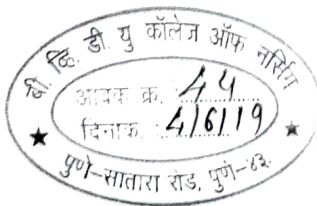 बी. व्हि. डी. यु कॉलेज ऑफ नर्सिंग
आवक क्र. 44
दिनांक. 4/6/19
पुणे-सातारा रोड, पुणे-४३.